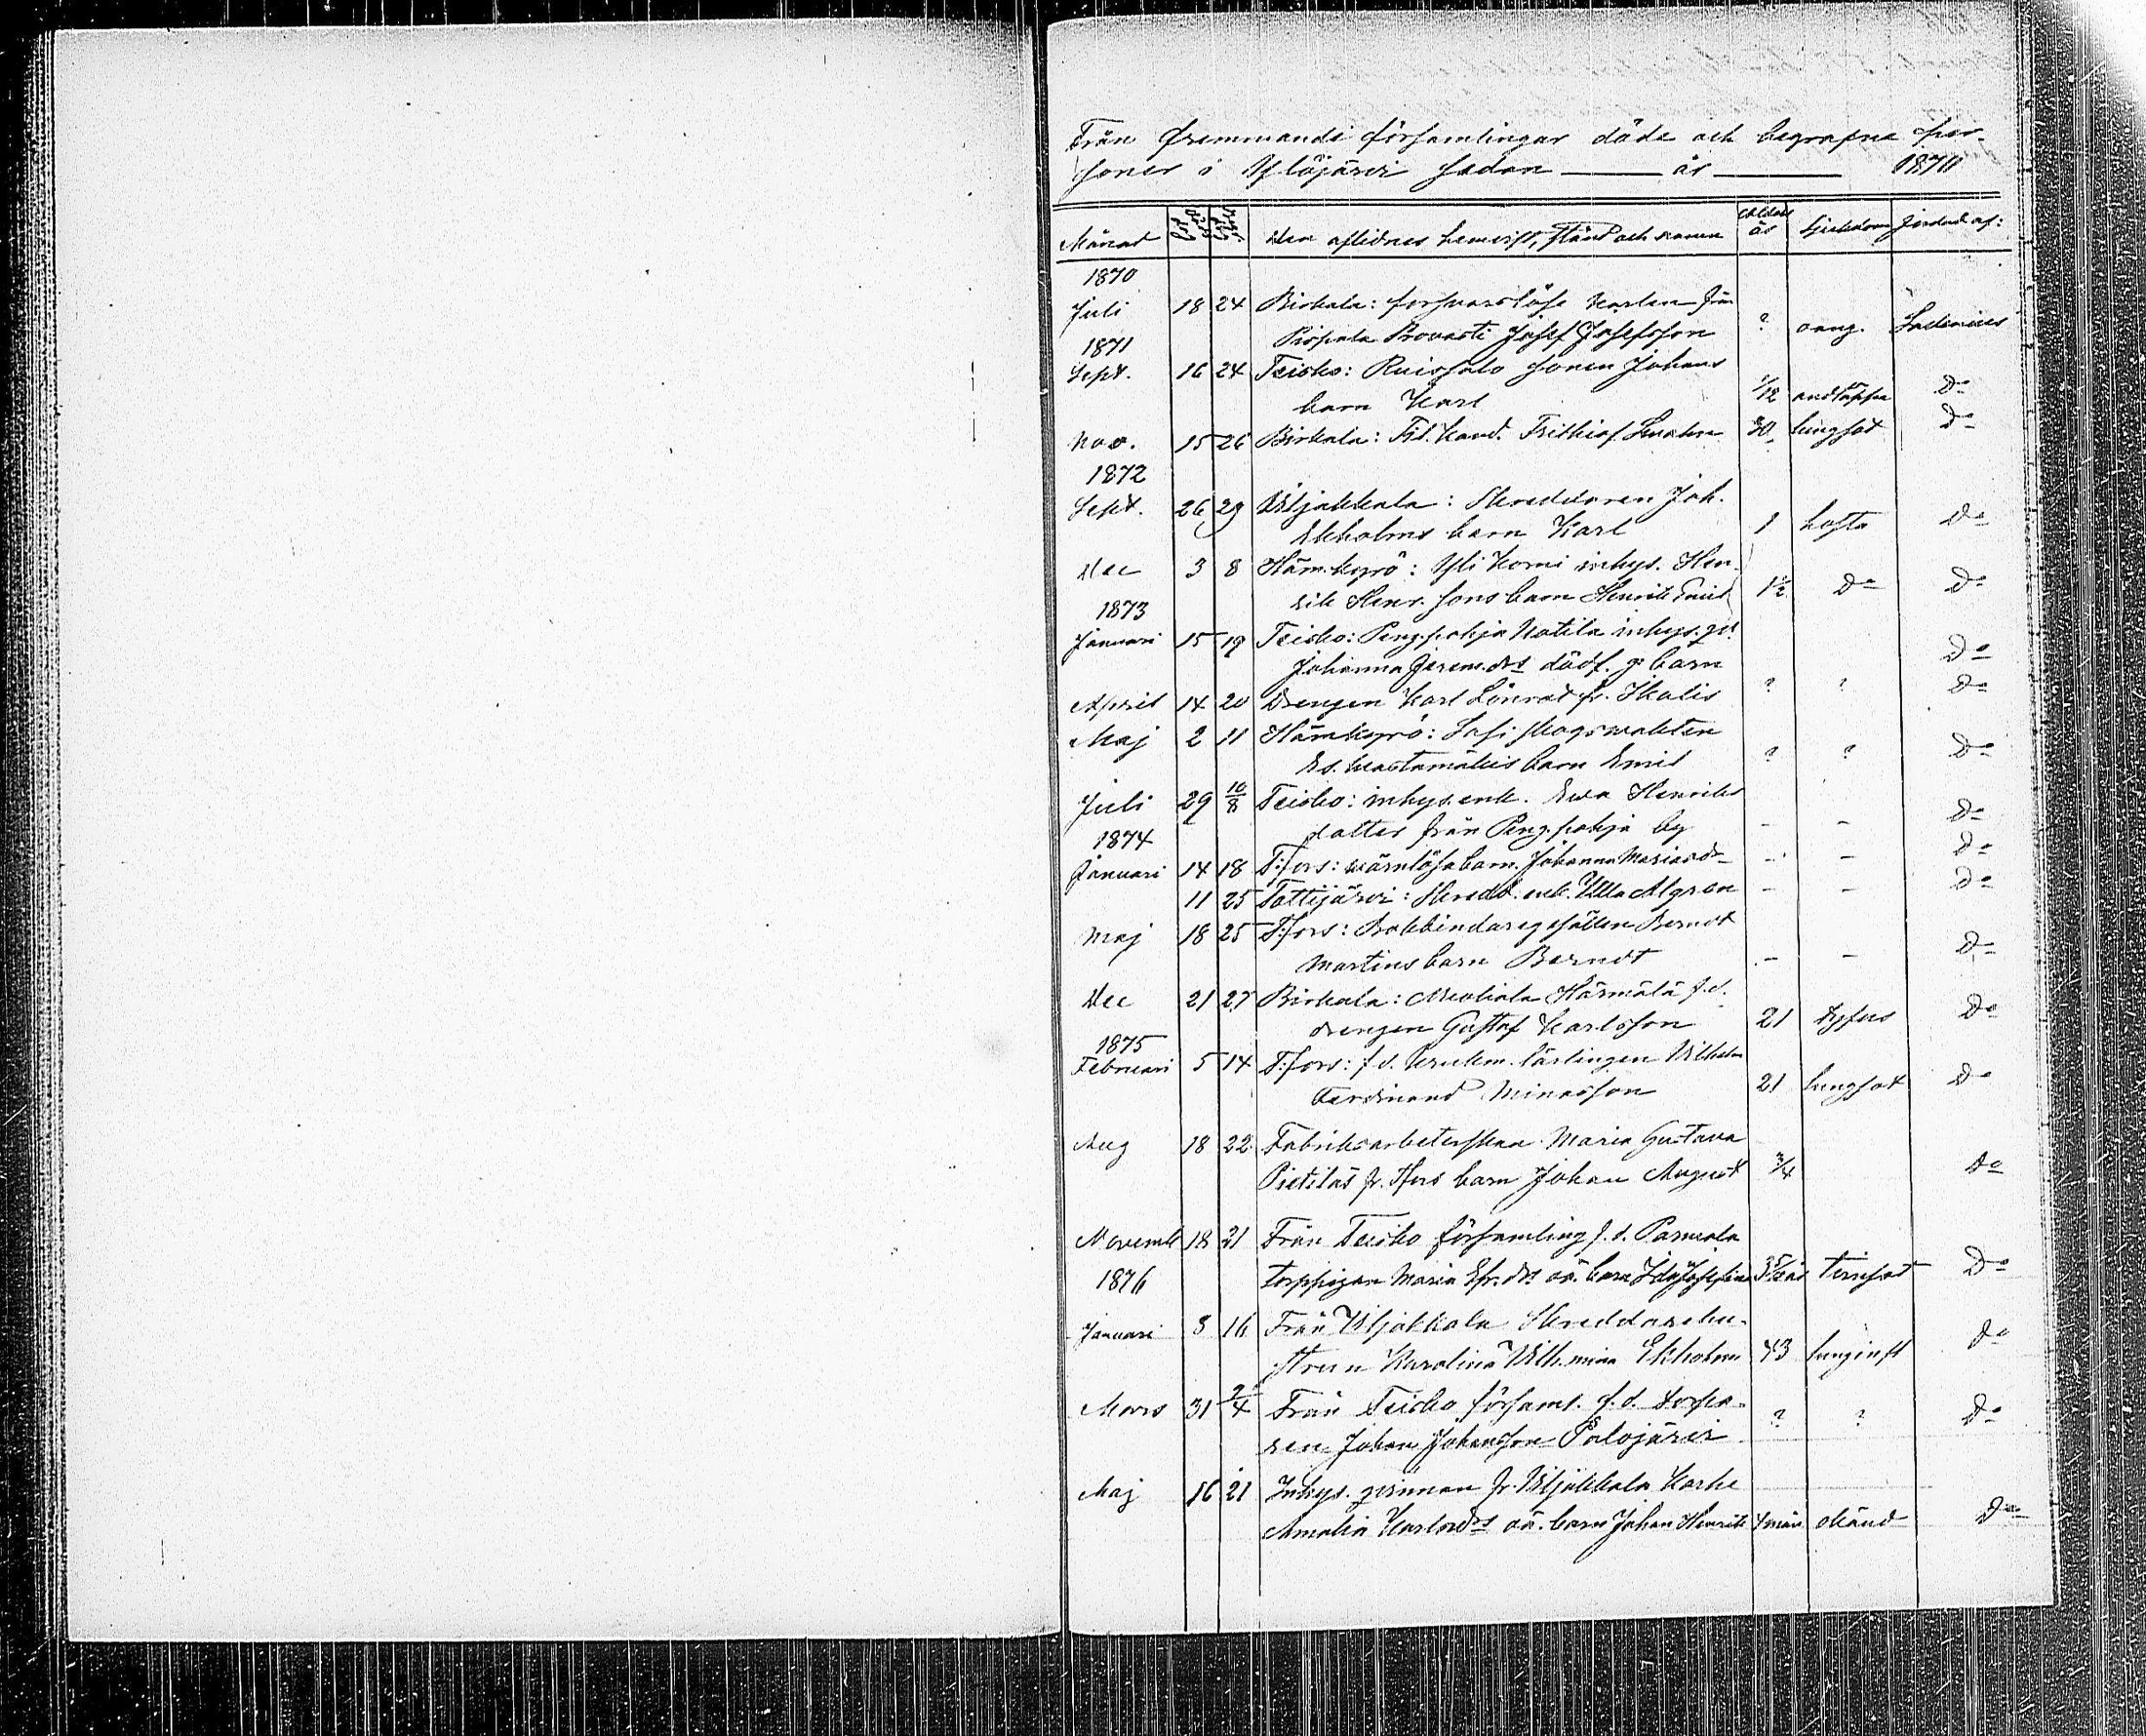 Från fremmande församlingar döde och begrafne per-
soner i Ylöjärvi sedan år 1870
Månad Den aflidnes hemvist, stånd och namn Ålder år Sjukdom Jordad af:
1870
Juli 18 24 Birkala: försvarslöse karlen från
Pispala Provasti Josef Josefsson ? oang.
1871
Sept. 16 24 Teisko: Ruissalo sonen Johans
barn Karl 1/12 andtäppa Do
Nov. 15 26 Birkala: Fil. Kand. Frithiof 30 lungsot Do
1872
Sept. 26 29 Viljakkala: Skreddaren Joh.
Ekholms barn Karl 1 hosta Do
Dec 3 8 Häm.kyrö: Yli Komi inhys. Hen-
rik Henr. sons barn Henrik Emil 1½ Do Do
1873
Januari 15 19 Teisko: Peng.pohja Kotila inhys.
Johanna Jerem.drs dödf. g. barn Do
April 14 20 Drengen Karl Lönrot fr. Ikalis ? ? Do
Maj 2 11 Hämkyrö: Sasi skogswakten
Es. barn Emil ? ? Do
Juli 29 10/8 Teisko: inhys.enk. Ewa Henriks
dotter från Peng.pohja by - - Do
1874
Januari 14 18 T:fors: värnlösa barn Johanna - - Do
11 25 Tottijärvi: Skredd. enk. Ulla Algren - - Do
Maj 18 25 T:fors: Bokbindaregesällen Berndt
Martins barn Berndt - - Do
Dec 21 27 Birkala: Härmälä f.d.
drengen Gustaf Karlsson 21 tyfus Do
1875
Februari 5 14 T:fors: f.d. lärlingen Vilhelm
Ferdinand Minasson 21 lungsot Do
Aug 18 22 Fabriksarbeterskan Maria Gustava
Pietiläs fr. Tfors barn Johan August ¾ Do
Novemb 18 21 Från Teisko församling f.d.
torppigan Maria Efr.drs oä. barn Ida Josefina Do
1876
Januari 8 16 Från Viljakkala Skreddarehu-
strun Karolina Vilh.mina Ekholm 43 Do
Mars 31 2/4 Från Teisko församl. f.d. torpa-
ren Johan Johansson Palojärvi ? ? Do
Maj 16 21 Inhys. qvinnan fr. Viljakkala Karhe
Amalia Karlsdrs oä. barn Johan Henrik okänd Do